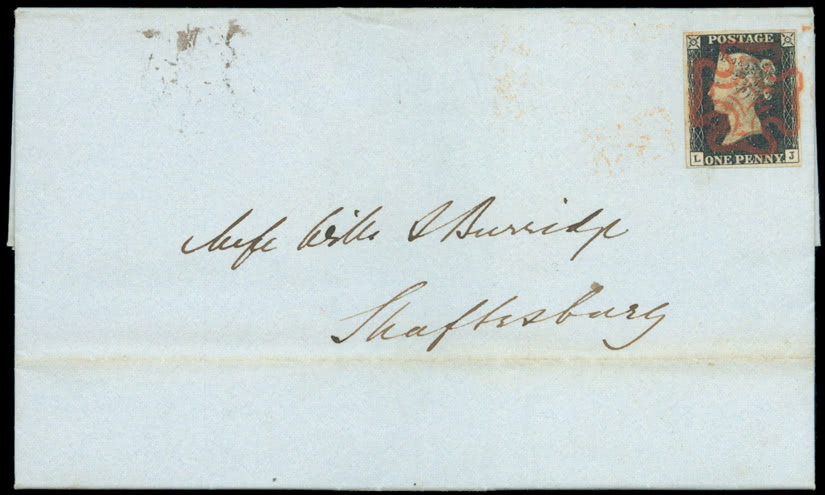 POSTAGE
L J
ONE PENNY
Messrs Wills & Burridge
Shaftesbury